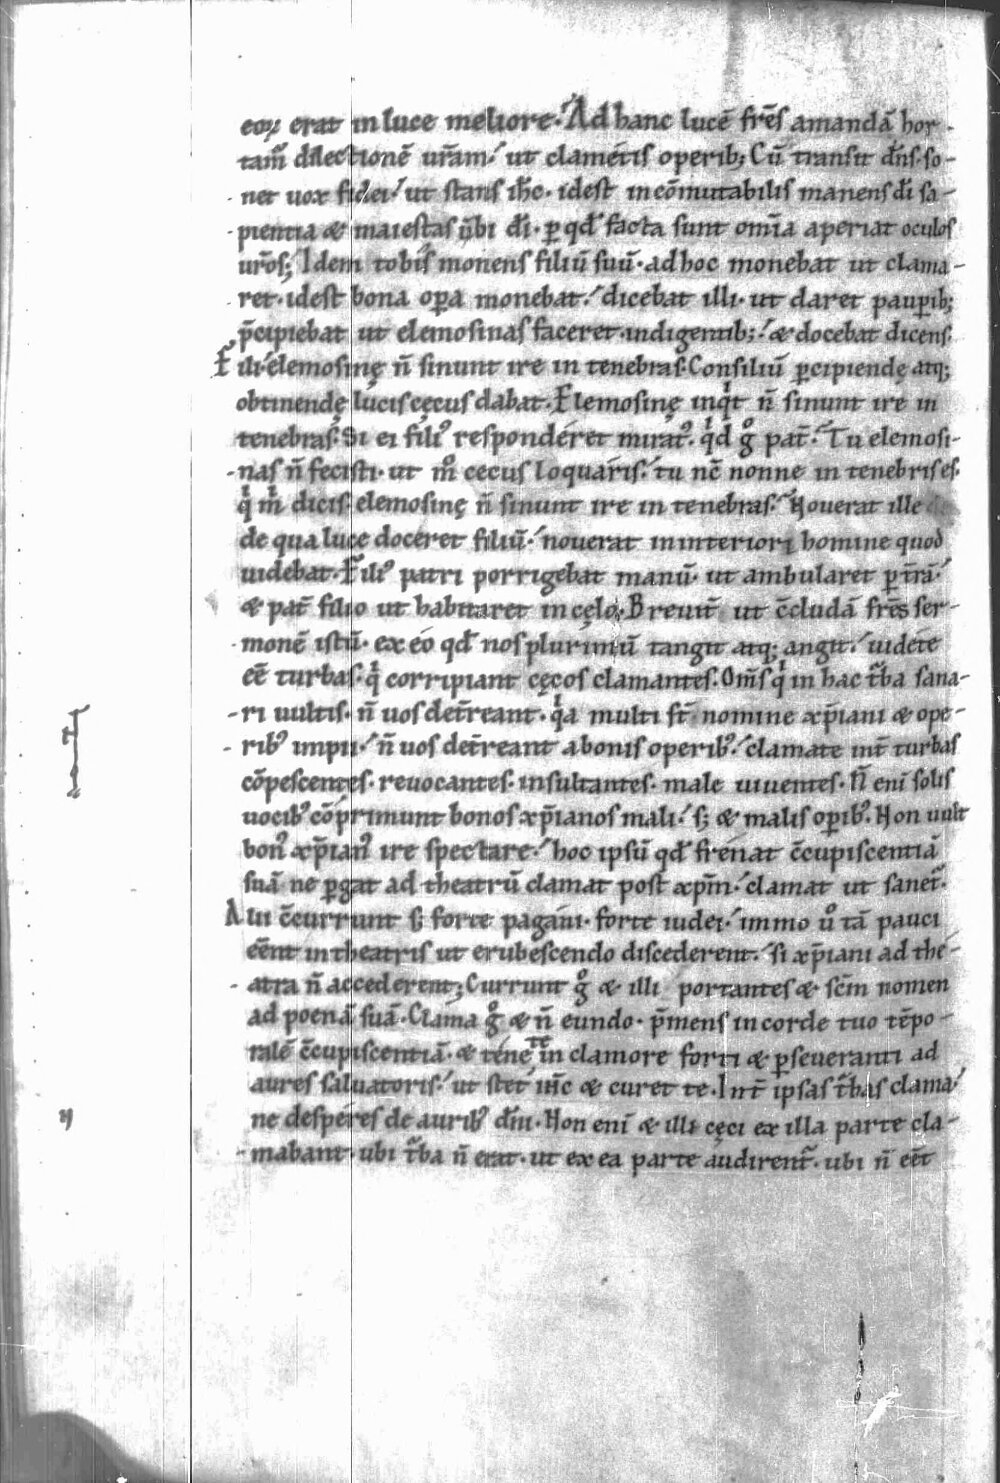 eoꝝ erat in luce meliore. Ad hanc lucē fr̄es amandā hor-
tam̄ dilectionē ur̄am. ut clametis operib; Cū transit dn̄s. so-
net uox fidei. ut stans ih̄c. idest incōmutabilis manens di̅ sa-
pientia & maiestas ūbi di̅. ꝑ qd̄ facta sunt om̄ia aperiat oculos
uros̄; Idem tobis monens filiū suū. ad hoc monebat ut clama-
ret. idest bona oꝑa monebat. dicebat illi. ut daret pauꝑib;
p̄cipiebat ut elemosinas faceret indigentib; & docebat dicens.
Fili. elemosinę n̄ sinunt ire in tenebras. Consiliū ꝑcipiendę atq;
obtinendę lucis cęcus dabat. Elemosinę inqͥt n̄ sinunt ire in
tenebras. Si ei filiꝰ responderet miratꝰ. qͥd gͦ pat̄. Tu elemosi-
nas n̄ fecisti. ut mͦ cecus loquaris. tu nc̄ nonne in tenebris es.
qͥ mͥ dicis. elemosinę n̄ sinunt ire in tenebras. Nouerat ille
de qua luce doceret filiū. nouerat in interiori homine quod
uidebat. Filiꝰ patri porrigebat manū. ut ambularet ꝑ tr̄a.
& pat̄ filio ut habitaret in cęlo. Breuit̄ ut c̄cludā fr̄es ser-
monē istū. ex eo qd̄ nos plurimū tangit atq; angit. uidete
eē turbas. qͥ corripiant cęcos clamantes. Om̄s qͥ in hac t̄ba sana-
ri uultis. n̄ uos det̄reant. qͥa multi st̄ nomine xp̄iani & ope-
ribꝰ impii. n̄ uos det̄reant a bonis operibꝰ. clamate int̄ turbas
cōpescentes. reuocantes. insultantes. male uiuentes. N̄ eni̅ solis
uocibꝰ cōprimunt bonos xp̄ianos mali. s; & malis oꝑibꝰ. Non uult
bonꝰ xp̄ianꝰ ire spectare. hoc ipsū qd̄ frenat c̄cupiscentiā
suā ne ꝑgat ad theatrū clamat post xp̄m. clamat ut sanet̄.
Alii c̄currunt s; forte pagani. forte iudei. immo uͦ tā pauci
eēnt in theatris ut erubescendo discederent. si xp̄iani ad the-
atra n̄ accederent; Currunt gͦ & illi portantes & sc̄m nomen
ad poenā suā. Clama gͦ & n̄ eundo. p̄mens in corde tuo tēpo-
ralē c̄cupiscentiā. & tene te in clamore forti & ꝑseueranti ad
aures saluatoris. ut stet ih̄c & curet te. Int̄ ipsas t̄bas clama.
ne desperes de auribꝰ dn̄i. Non eni̅ & illi cęci ex illa parte cla-
mabant. ubi t̄ba n̄ erat. ut ex ea parte audirent̄. ubi n̄ eēt